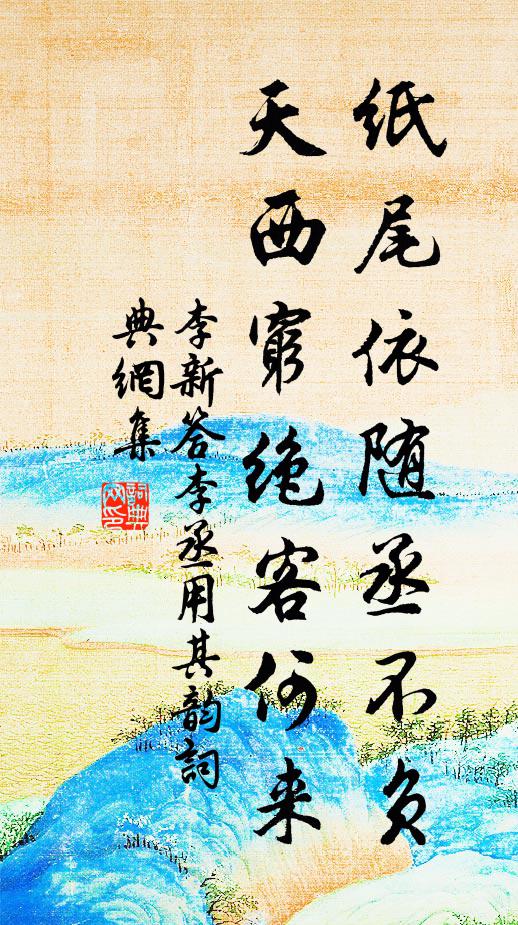 纸尾依随丞不负
天西穷绝客何来
李新答李丞用其韵詞
典網集
詞典网印